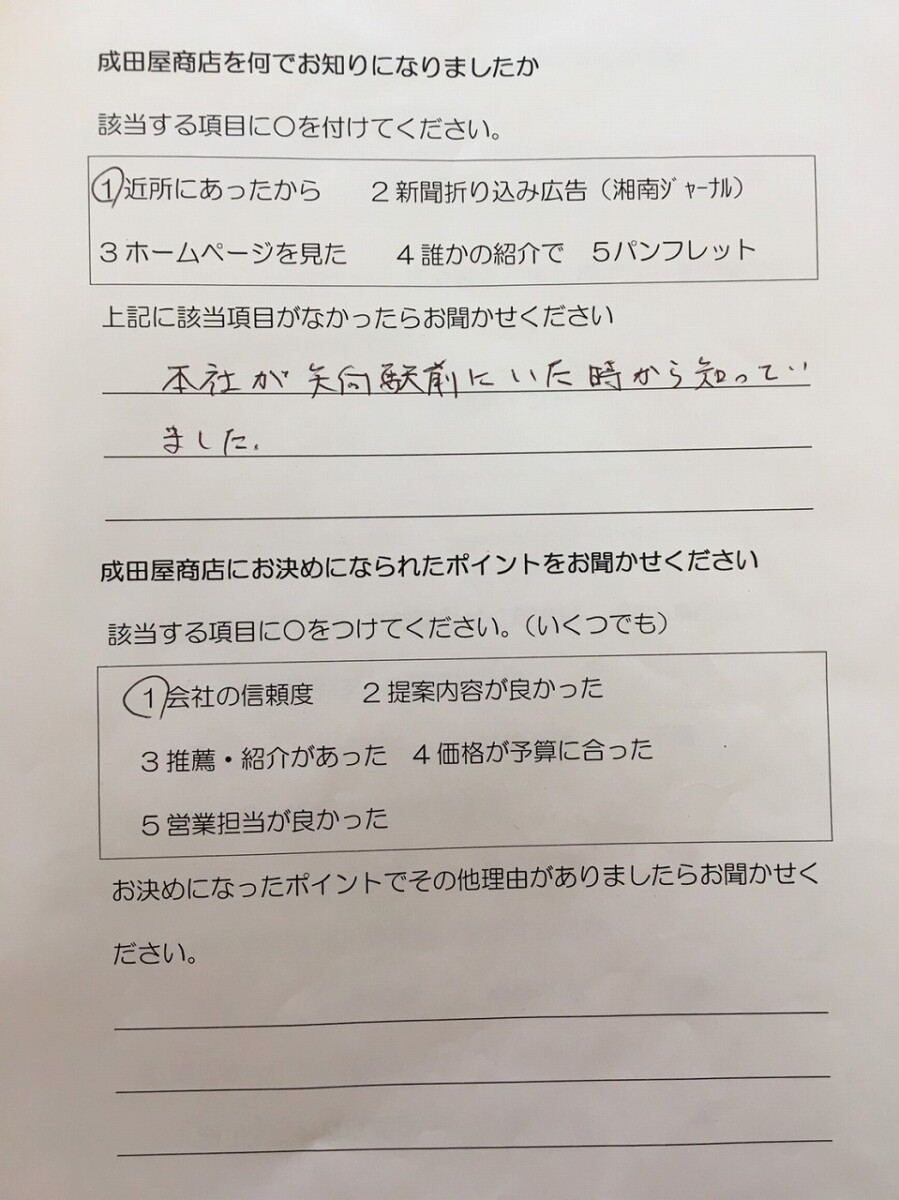 成田屋商店を何でお知りになりましたか
該当する項目に〇を付けてください。
1 近所にあったから 2 新聞折り込み広告（湘南ｼﾞｬｰﾅﾙ）
3 ホームページを見た 4 誰かの紹介で 5パンフレット
上記に該当項目がなかったらお聞かせください
本社が矢向駅前にいた時から知ってい
ました.
成田屋商店にお決めになられたポイントをお聞かせください
該当する項目に〇をつけてください。（いくつでも）
1 会社の信頼度 2 提案内容が良かった
3 推薦・紹介があった 4 価格が予算に合った
5 営業担当が良かった
お決めになったポイントでその他理由がありましたらお聞かせく
ださい。